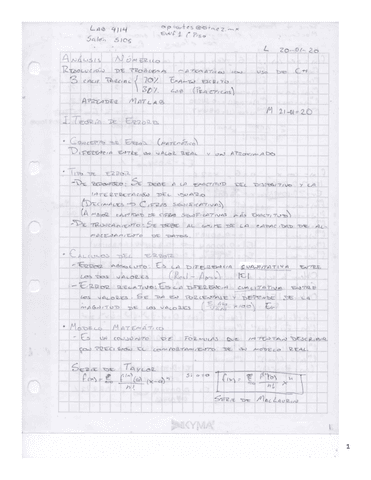 LAB 4114
SALON 5105
L 20-01-20
ANÁLISIS NUMÉRICO
RESOLUCIÓN DE PROBLEMA MATEMÁTICOS CON USO DE C++
3 CADA PARCIAL 70% EXAMEN ESCRITO
30% LAB (PRÁCTICAS)
APRENDER MATLAB
M 21-01-20
I. TEORÍA DE ERRORES
• CONCEPTO DE ERROR (MATEMÁTICO)
DIFERENCIA ENTRE UN VALOR REAL Y UN APROXIMADO
• TIPO DE ERROR
- DE REDONDEO: SE DEBE A LA EXACTITUD DEL DISPOSITIVO Y LA
INTERPRETACIÓN DEL USUARIO
(DECIMALES → CIFRAS SIGNIFICATIVAS)
(A MAYOR CANTIDAD DE CIFRAS SIGNIFICATIVAS MÁS EXACTITUD)
- DE TRUNCAMIENTO: SE DEBE AL LÍMITE DE LA CAPACIDAD DE AL-
MACENAMIENTO DE DATOS.
• CÁLCULOS DEL ERROR
- ERROR ABSOLUTO: ES LA DIFERENCIA CUALITATIVA ENTRE
LOS DOS VALORES
- ERROR RELATIVO: ES LA DIFERENCIA CUALITATIVO ENTRE
LOS VALORES. SE DA EN PORCENTAJE Y DEPENDE DE LA
MAGNITUD DE LOS VALORES
• MODELO MATEMÁTICO
- ES UN CONJUNTO DE FÓRMULAS QUE INTENTAN DESCRIBIR
CON PRECISIÓN EL COMPORTAMIENTO DE UN MODELO REAL.
SERIE DE TAYLOR
SERIE DE MACLAURIN
KYMA
1